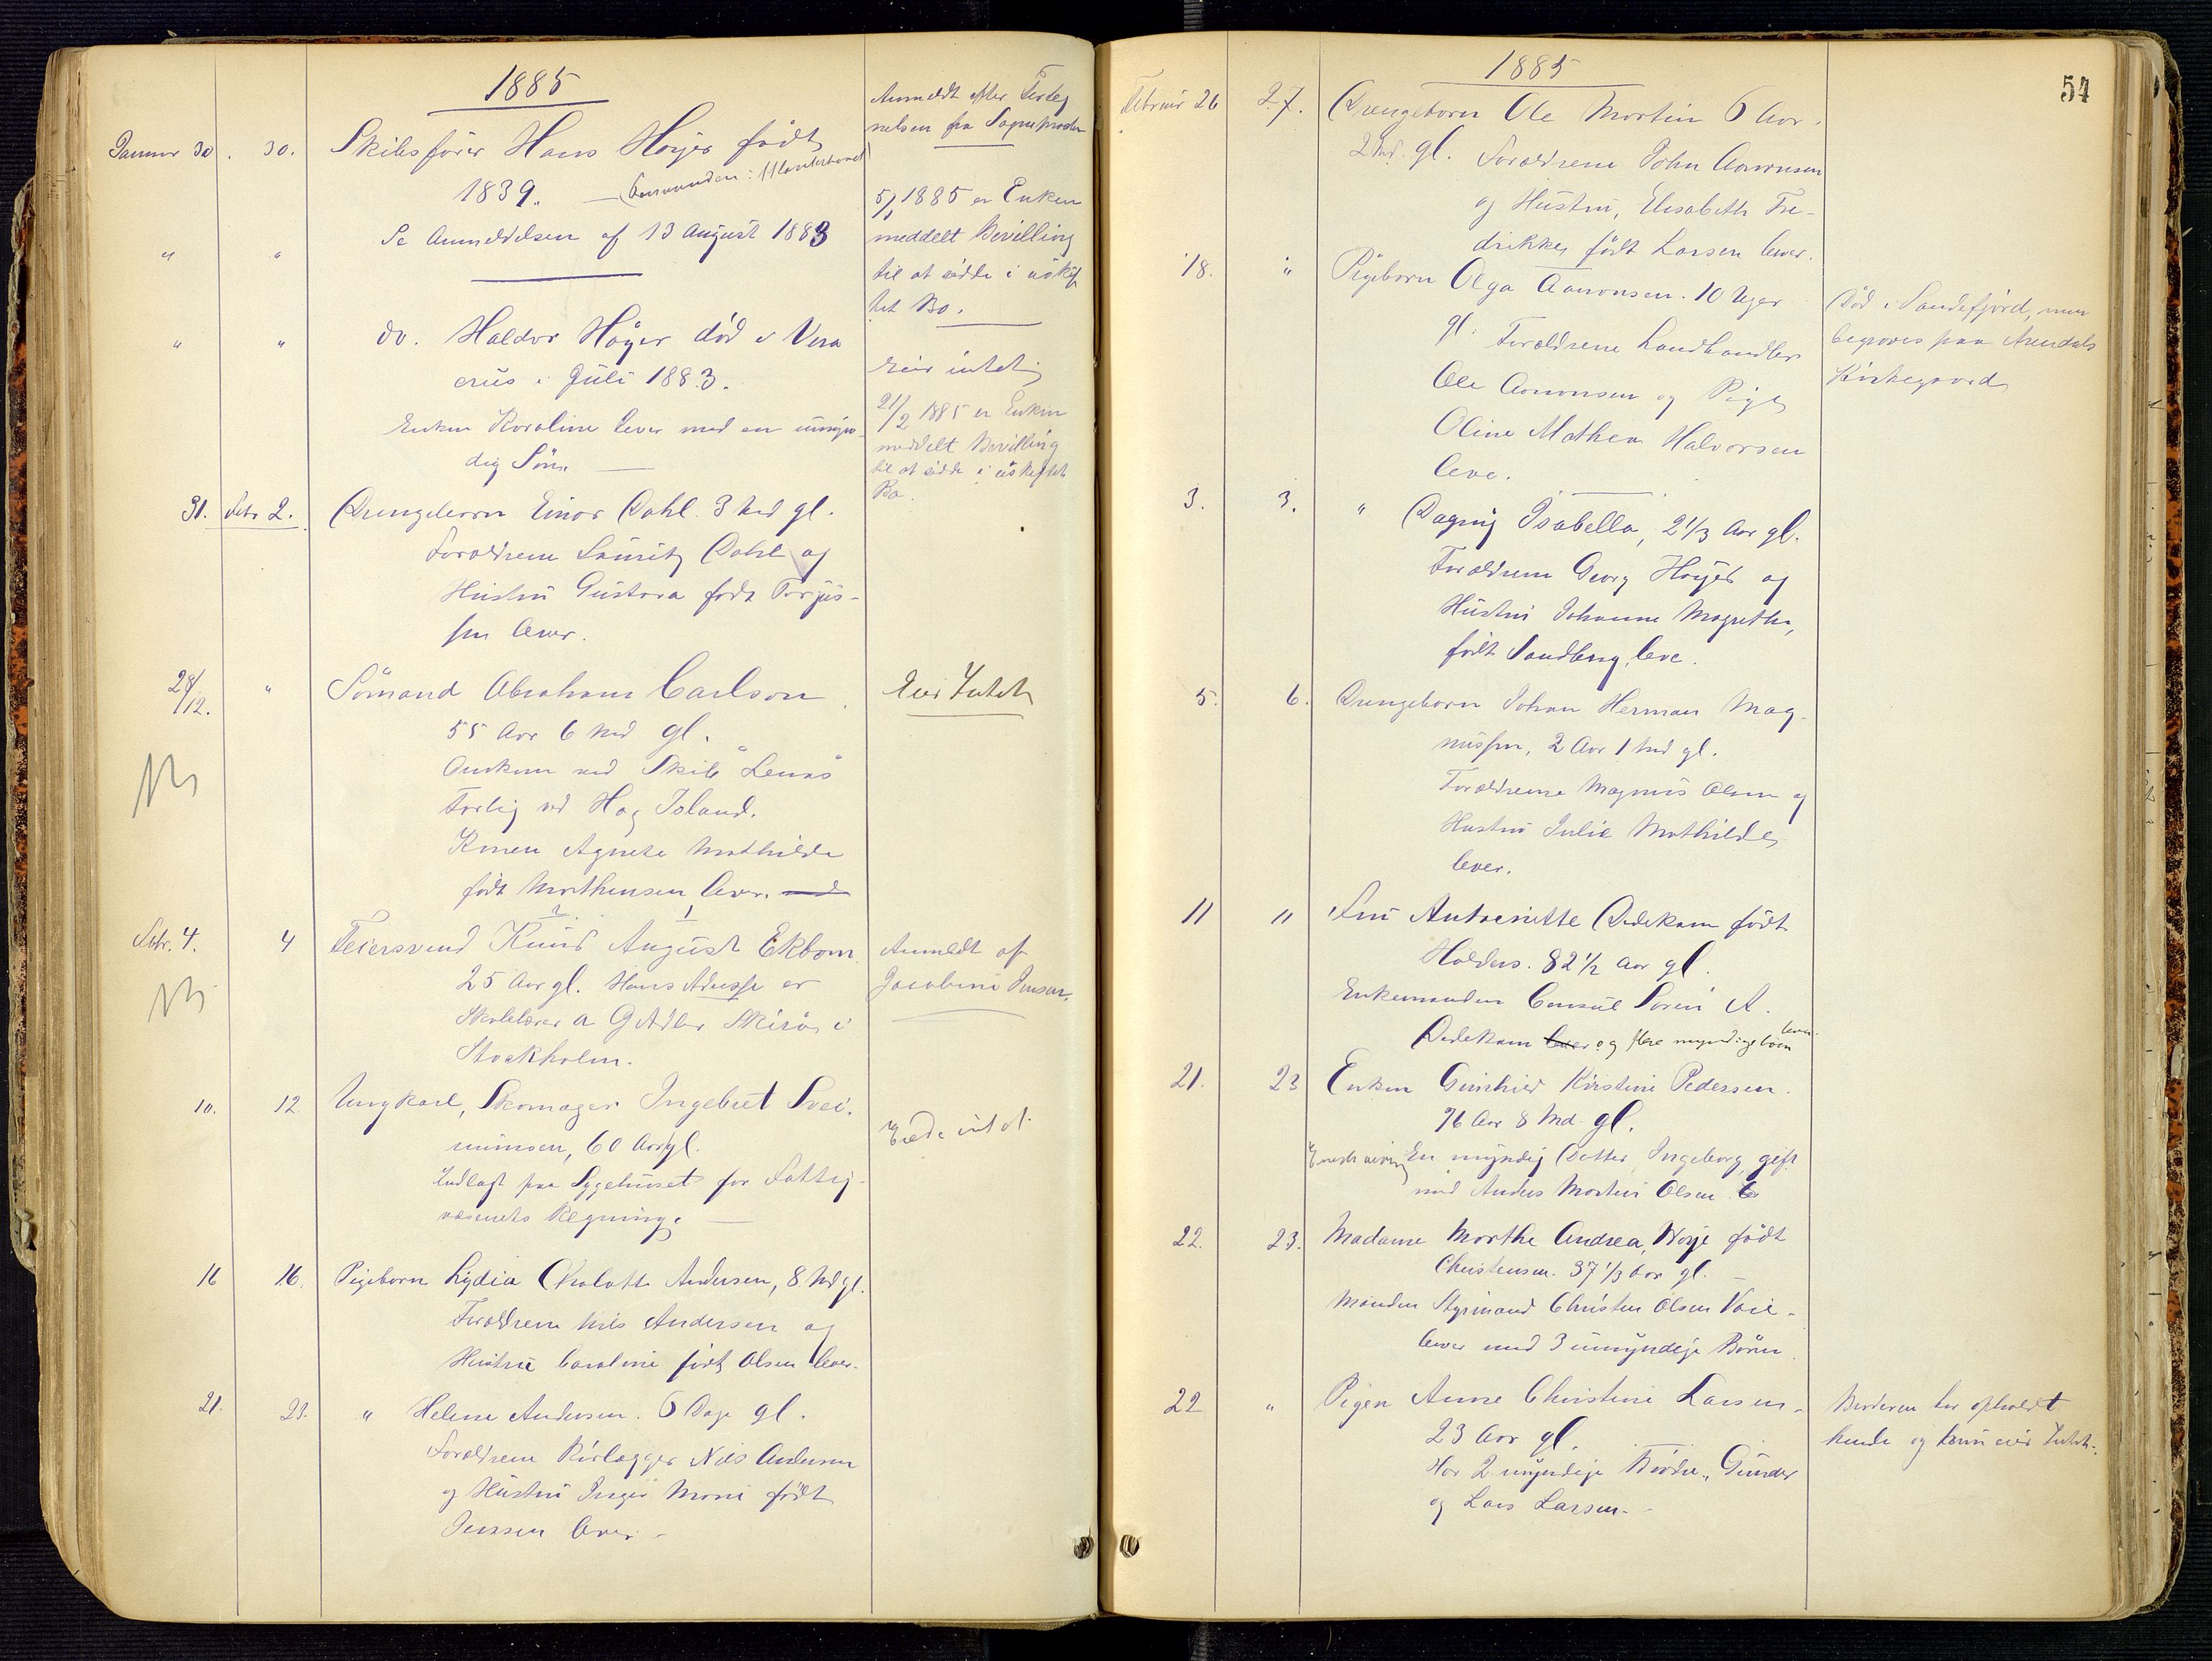 1885
Januar 30. 30. Skibsfører Hans Høyer født
1839.
Se Anmeldelsen af 13 August 1883
Anmeldt efter
fra
5/1 1885 er Enken
meddelt Bevilling
til at sidde i uskif
tet Bo.
" " do. Haldor Høyer død i Vera
crus i Juli 1883.
Enken Karoline lever med en umyn-
dig Søn.
Eier intet
21/2 1885 er Enken
meddelt Bevilling
til at sidde i uskiftet
Bo.
31. Febr 2. Drengebarn Einar Dahl 3 Md gl.
Forældrene Lauritz Dahl og
Hustru Gustava født Terjes-
sen lever.
28/12. " Sømand Abraham Carlson
55 Aar 6 Md gl.
Omkom ved Skib "Lenus"
Forlis ved Hog Island.
Konen Agnete Mathilde
født Mortensen lever.
Eier Intet
NB
Febr. 4. 4 Feiersvend Knud August Ekbom
25 Aar gl. Hans Adresse er
Skolelærer a G Adler Skisø i
Stockholm.
Anmeldt af
Jacobine Jensen.
NB
10. 12 Ungkarl, Skomager Ingebret Svei-
nunsen, 60 Aar gl.
Indlagt paa Sygehuset for Fattig-
væsenets Regning.
Eiede intet
16 16. Pigebarn Lydia Chalotte Andersen, 8 Md gl.
Forældrene Nils Andersen og
Hustru Caroline født Olsen lever.
21. 21. " Helene Andersen. 6 Dage gl.
Forældrene Rørlægger Nils Andersen
og Hustru Inger Marie født
Jensen lever.
1885
54
Februar 26 27. Drengebarn Ole Martin 6 Aar
2 Md. gl. Forældrene John Aanonsen
og Hustru, Elisabeth Fre-
drikke født Larsen lever.
18. " Pigebarn Olga Aanonsen. 10 Uger
gl. Forældrene Landhandler
Ole Aanonsen og Pige
Oline Mathea Halvorsen
leve.
Død i Sandefjord, men
begraves paa Arendals
Kirkegaard
3. 3. " Dagny Isabella, 2 1/3 Aar gl.
Forældrene Georg Høyer og
Hustru Johanne Magrethe,
født Sandberg, leve.
5. 6. Drengebarn Johan Herman Mag-
nussen, 2 Aar 1 Md gl.
Forældrene Magnus Olsen og
Hustru Julie Mathilde
lever.
11 11 Fru Antoinette Dedekam født
Holders. 82 1/2 Aar gl.
Enkemanden Consul Søren A.
Dedekam lever og flere myndige børn lever.
21. 23 Enken Gunhild Kirstine Pedersen.
76 Aar 8 Md gl.
En myndig Datter Ingeborg, gift
med Anders Martin Olsen
22. 23. Madame Marthe Andrea Woje født
Christensen. 37 1/3 Aar gl.
Manden Styrmand Christen Olsen Voie
lever med 3 umyndige Børn.
22 " Pigen Anne Christine Larsen
23 Aar gl.
Har 2 myndige Brødre, Gunder
og Lars Larsen.
Broderen har opholdt
hende og hun eier Intet.